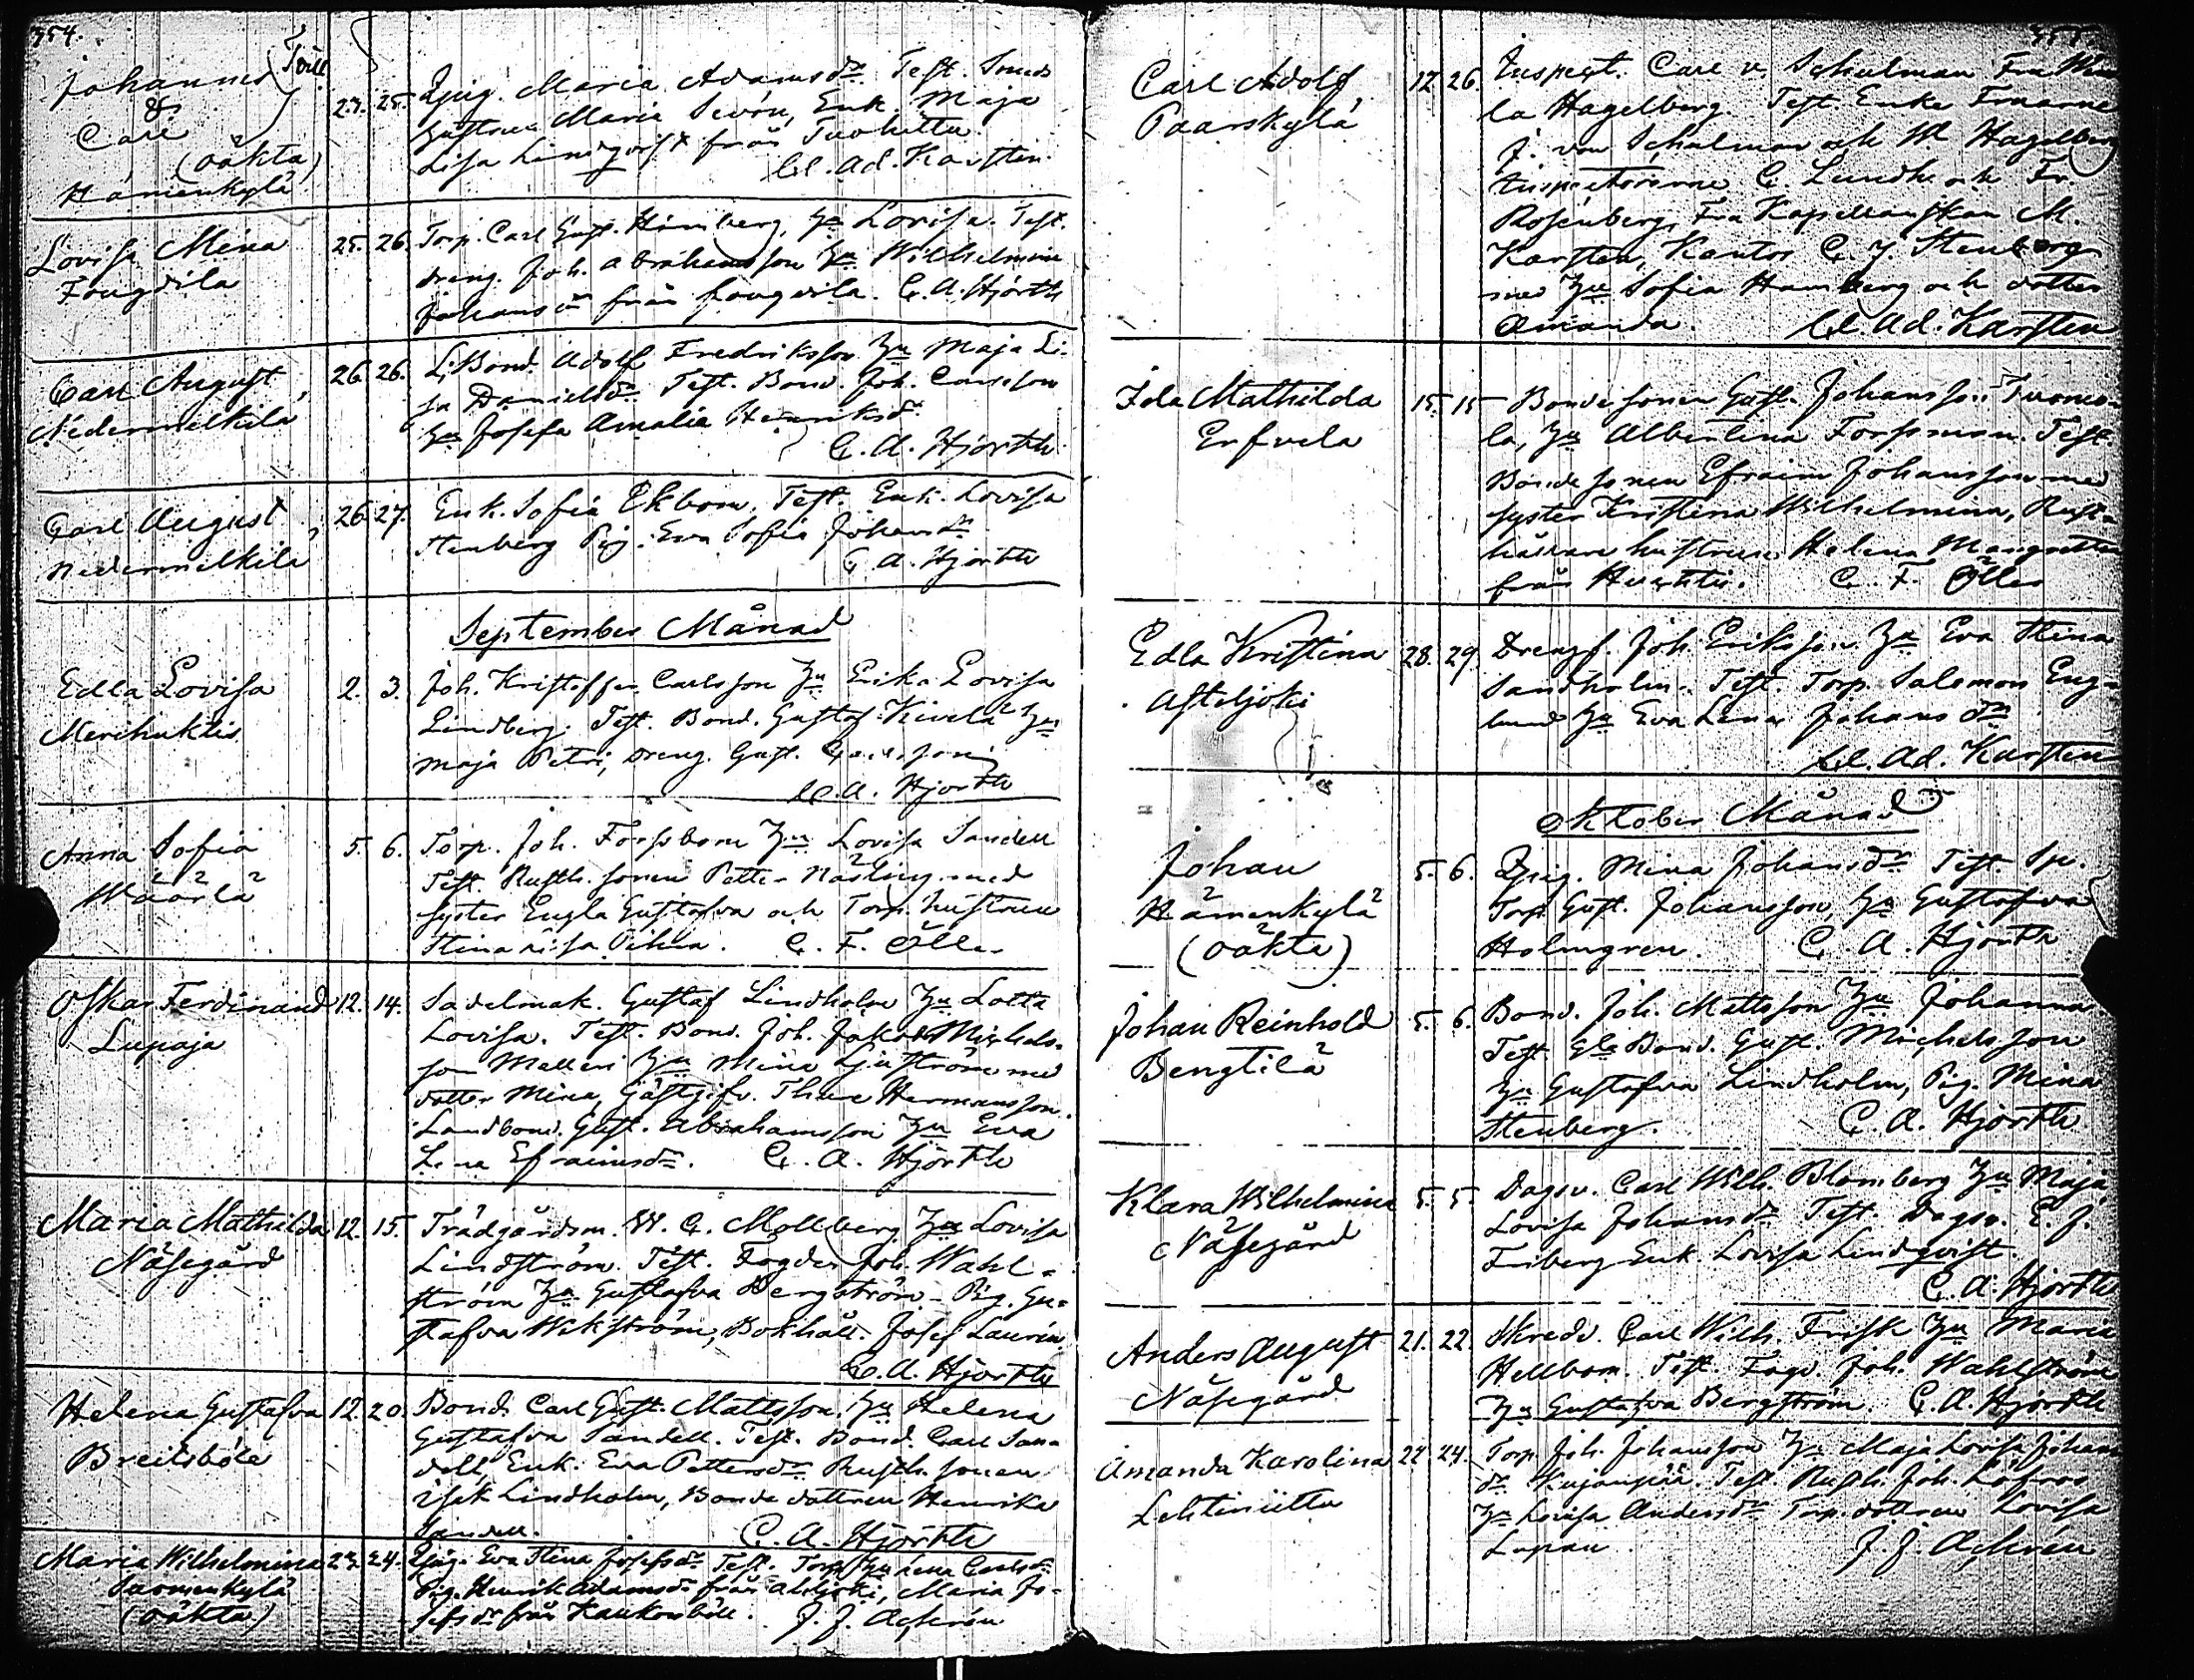 354.
Johannes
&
Carl
(oäkta)
Hämenkylä
23. 25. Qpig. Maria Adamsdr Test. Smeds
hustrun Maria Sevón, Enk. Maja
Lisa Lindqvist från Tavohitta.
Cl. Ad. Karsten.
Lovisa Mina
Fougdila
25. 26. Torp. Carl Gust. Himberg, Hu Lovisa. Test.
dreng. Joh. Abrahamsson Hu Wilhelmina
Johansdr från Fougdila. C. A. Hjorth
Carl August
Nedermelkilä
26. 26. L. Bond. Adolf Fredriksson Hu Maja Li-
sa Danielsdr. Test. Bond. Joh. Carlsson
Hu Josefa Amalia Henriksdr
C. A. Hjorth
Carl August
Nedermelkilä
26. 27. Enk. Sofia Ekbom. Test. Enk. Lovisa
Stenberg Pig. Eva Sofia Johansdr
C. A. Hjorth
September Månad
Edla Lovisa
Merihuktis
2. 3. Joh. Kristoffer Carlsson Hu Erika Lovisa
Lindberg. Test. Bond. Gustaf Kivelä Hu
Maja Petri, dreng. Gust. Carlsson
C. A. Hjorth
Anna Sofia
Wäärlä
5. 6. Torp. Joh. Forsbom Hu Lovisa Sandell
Test. Rusth. sonen Petter Näsling med
syster Engla Gustafva och Torp. hustrun
Stina Lisa C. F. Öller
Oskar Ferdinand
Lupaja
12. 14. Sadelmak. Gustaf Lindholm Hu Lotta
Lovisa. Test. Bond. Joh. Jakob Michels-
son Melleri Hu Mina Ljuström med
dotter Mina, Gästgifv. Thure Hermansson.
Landbond. Gust. Abrahamsson Hu Eva
Lena Efraimsdr. C. A. Hjorth
Maria Mathilda
Näsegård
12. 15. Trädgårdsm. W. G. Mollberg Hu Lovisa
Lindström. Test. Fogden Joh. Wahl-
ström Hu Gustafva Bergström - Pig. Gu-
stafva Wikström, Bokhåll. Josef Laurén
C. A. Hjorth
Helena Gustafva
Breilsböle
12. 20. Bond. Carl Gust. Mattsson, Hu Helena
Gustafva Sandell. Test. Bond. Carl San-
dell, Enk. Eva Pettersdr Rusth. sonen
Isak Lindholm, Bonde dottren Henrika
Sandell. C. A. Hjorth
Maria Wilhelmina
Suomenkylä
(oäkta)
23. 24. Qpig. Eva Stina Josefsdr Test. Torp. Hu Lena Carlsdr
Pig. Henrik Adamsdr från Ahljoki, Maria Jo-
sefsdr från Kaukosböle. J. J. Achrén
355.
Carl Adolf
Paarskylä
12 26. Inspect. Carl v. Schulman Fru Wen
la Hagelberg. Test. Enke Fruarne
J. von Schulman och W Hagelberg
Inspectorerne C. Lundh och Fr.
Rosenberg, Fru Kapellanskan M.
Karsten, Kantor C. J. Stenberg
med Hu Sofia Hamberg och dotter
Amanda. Cl. Ad. Karsten
Ida Mathilda
Erfvela
15. 15 Bondesonen Gust. Johansson Tuomo-
la, Hu Albertina Forsman. Test
Bondesonen Efraim Johansson med
syster Kristina Wilhelmina, Rust-
hållare hustrun Helena Margretta
från Huhtis. C. F. Öller
Edla Kristina
Asteljoki
28. 29. Drengf. Joh. Eriksson Hu Eva Stina
Sandholm. Test. Torp. Salomon Eng-
lund Hu Eva Lena Johansdr
Cl. Ad. Karsten
Oktober Månad
Johan
Hämenkylä
(oäkta)
5. 6. Qpig. Mina Johansdr Test. Sp.
Torp. Gust. Johansson, Hu Gustafva
Holmgren. C. A. Hjorth
Johan Reinhold
Bengtilä
5. 6. Bond. Joh. Mattsson Hu Johanna
Test. Gla Bond. Gust. Michelsson
Hu Gustafva Lindholm, Pig. Mina
Stenberg. C. A. Hjorth
Klara Wilhelmina
Näsegård
5. 5. Dagsv. Carl Wilh. Blomberg Hu Maja
Lovisa Johansdr Test. Dagsv. E. J.
Friberg Enk. Lovisa Lindqvist.
C. A. Hjorth
Anders August
Näsegård
21. 22. Skredd. Carl Wilh. Frisk Hu Maria
Hellbom. Test. Fogd. Joh. Wahlström
Hu Gustafva Bergström. C. A. Hjorth
Amanda Karolina
Lehtinitta
22 24. Torp. Joh. Johansson Hu Maja Lovisa Johans
dr Kujanpää. Test. Rusth. Joh. Löfroos
Hu Lovisa Andersdr Torp. dottren Lovisa
Lupan. J. J. Achrén